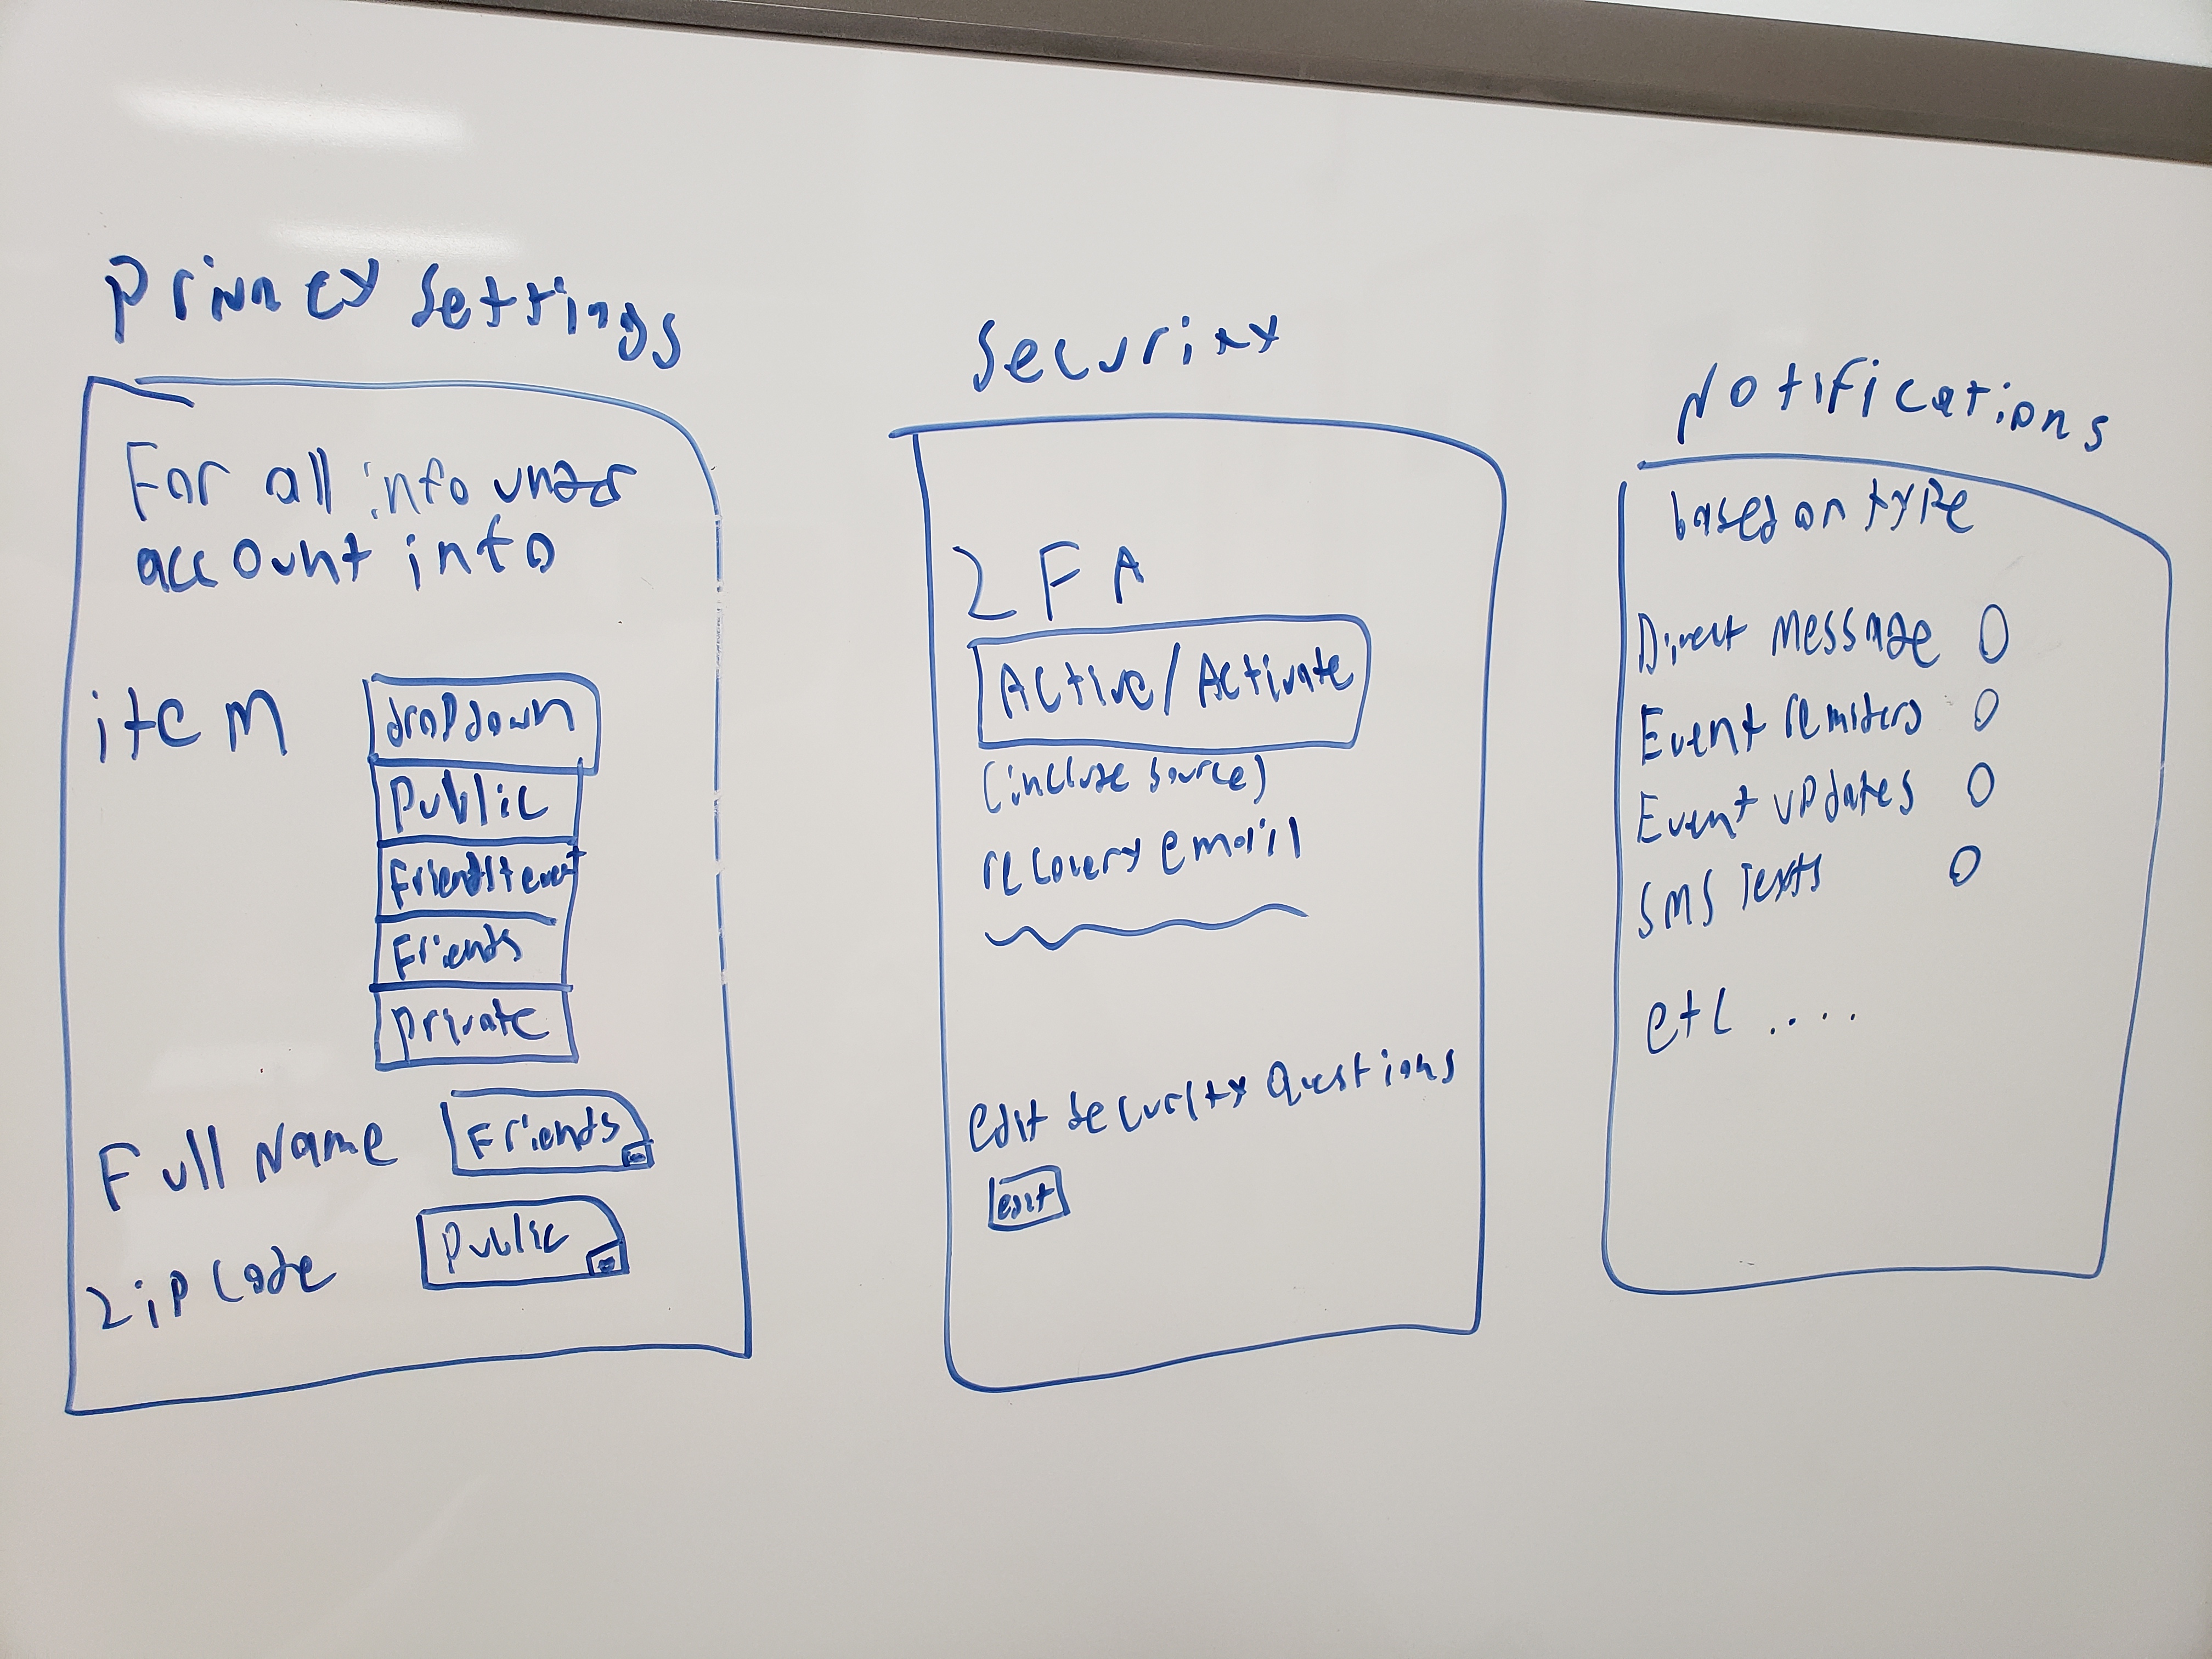 Privacy Settings
For all info under
account info
item
dropdown
Public
Friends+event
Friends
Private
Full Name
Friends
Zip Code
Public
Security
2FA
Active/Activate
(include source)
recovery email
edit security Questions
edit
Notifications
based on type
Direct Message
Event remiders
Event updates
SMS Texts
etc ....